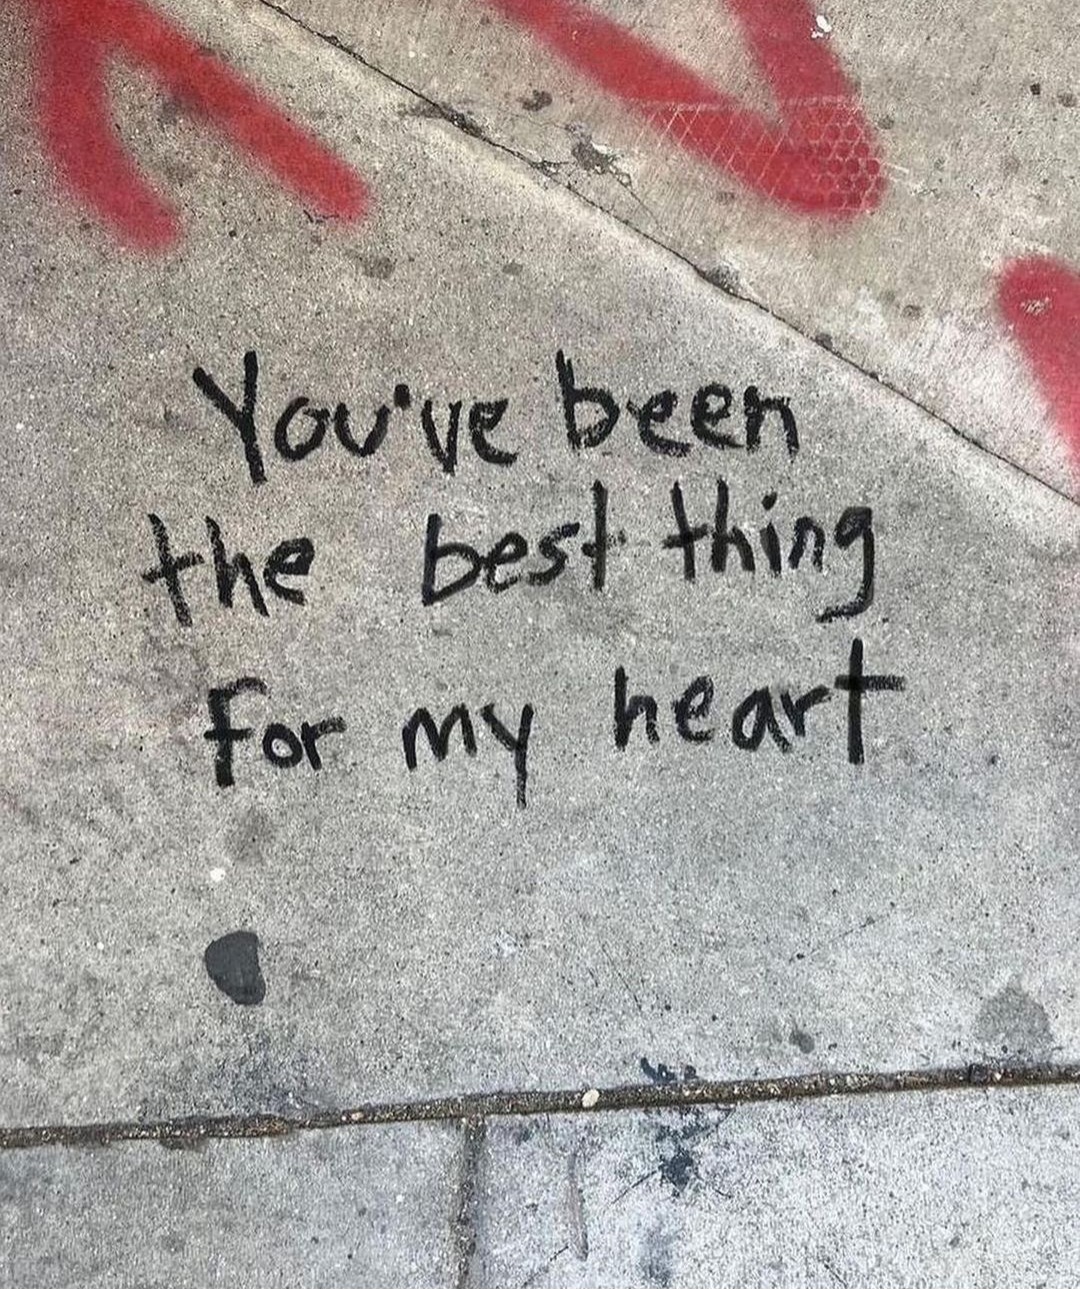 You've been
the best thing
for my heart